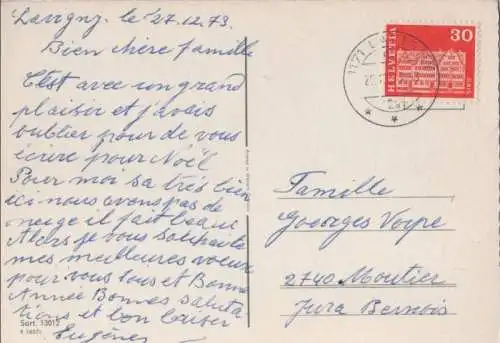 Lavigny. le 27.12.73.
Bien chère famille
C'est avec un grand
plaisir et j'avais
oublier pour de vous
écrire pour Noël
Pour moi sa très bien
ici nous avons pas de
neige il fait beau.
Alors je vous souhaite
mes meilleures voeux
pour vous tous et Bonne
Année Bonnes saluta
tions et bon baiser
Eugène
Sort. 13012
HELVETIA
30
Famille
Georges Voipe
2740 Moutier
Jura Bernois